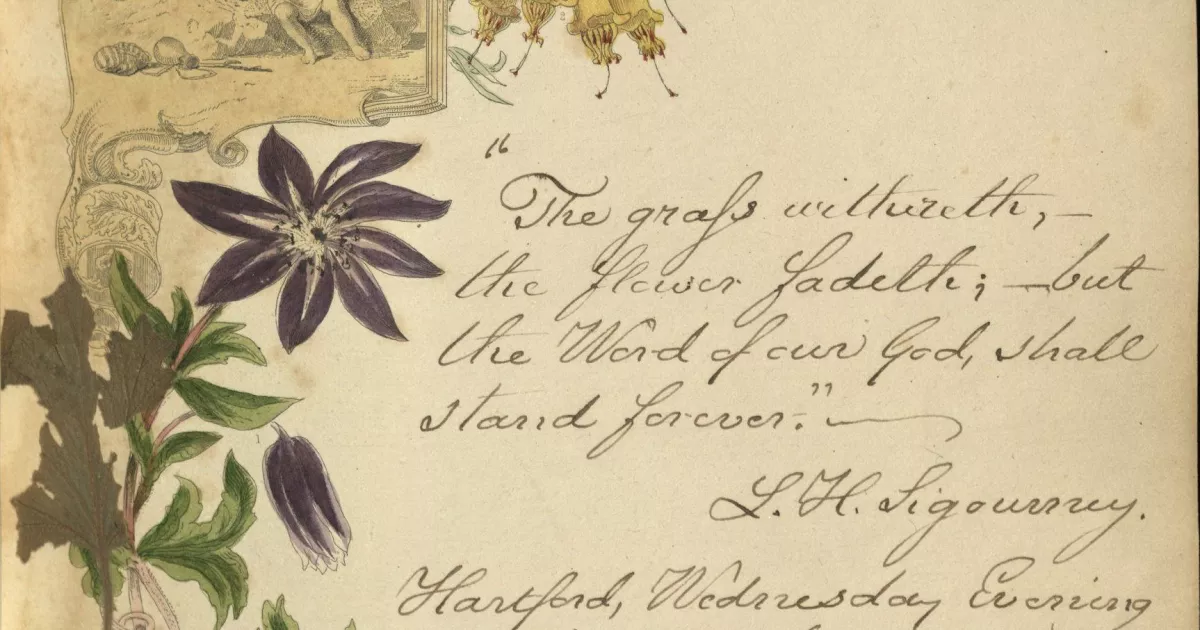 "
The grass withereth, —
the flower fadeth; — but
the Word of our God, shall
stand forever." —
L. H. Sigourney.
Hartford, Wednesday Evening